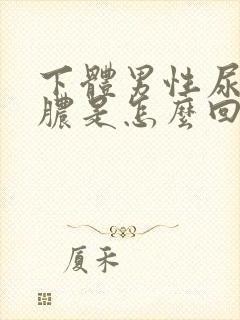 下體男性尿
膿是怎麼回
厦禾